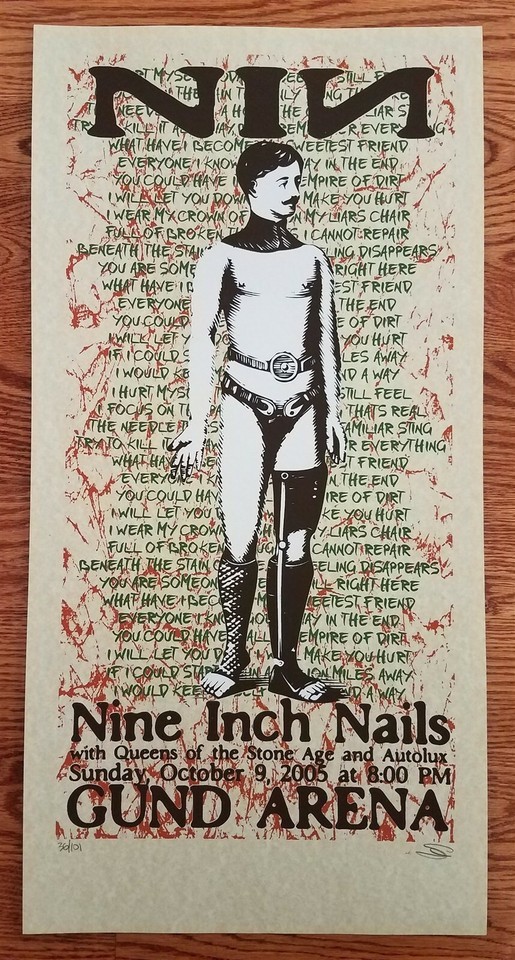 NIИ
WHAT HAVE I BECOME WEETEST FRIEND
EVERYONE I KNOW AY IN THE END
YOU COULD HAVE EMPIRE OF DIRT
I WILL LET YOU DOWN MAKE YOU HURT
I WEAR MY CROWN OF N MY LIARS CHAIR
FULL OF BROKEN I CANNOT REPAIR
BENEATH THE STAIN ELING DISAPPEARS
YOU ARE SOME RIGHT HERE
WHAT HAVE I EST FRIEND
EVERYONE THE END
YOU COULD E OF DIRT
I WILL LET YOU HURT
IF I COULD S LES AWAY
I WOULD KEE D A WAY
I HURT MYSE STILL FEEL
I FOCUS ON T THATS REAL
THE NEEDLE T AMILIAR STING
TRY TO KILL IT ER EVERYTHING
WHAT HAV T FRIEND
EVERYO THE END
YOU COULD HA IRE OF DIRT
I WILL LET YOU KE YOU HURT
I WEAR MY CROWN Y LIARS CHAIR
FULL OF BROKEN UG CANNOT REPAIR
BENEATH THE STAIN ELING DISAPPEARS
YOU ARE SOMEON ILL RIGHT HERE
WHAT HAVE I BECOM WEETEST FRIEND
EVERYONE I KNOW AY IN THE END
YOU COULD HAVE ALL EMPIRE OF DIRT
I WILL LET YOU D MAKE YOU HURT
IF I COULD STAR ION MILES AWAY
I WOULD KEE ELF D A WAY
Nine Inch Nails
with Queens of the Stone Age and Autolux
Sunday October 9, 2005 at 8:00 PM
GUND ARENA
36/101